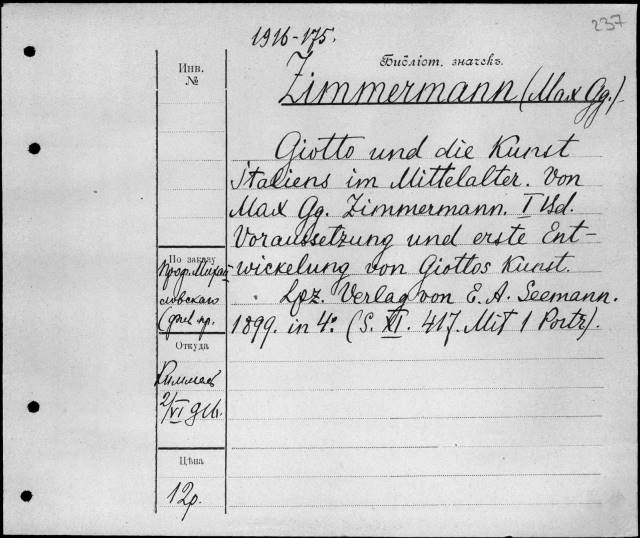 237
1916-175.
Инв.
№
Библіот. значекъ.
Zimmermann (Max Gg.)
Giotto und die Kunst
Italiens im Mittelalter. Von
Max Gg. Zimmermann. I Bd.
Voraussetzung und erste Ent-
wickelung von Giottos Kunst.
Lpz. Verlag von E. A. Seemann.
1899. in 4º (S. XI. 417. Mit 1 Portr).
По заказу
проф. Михай-
ловскаго
Откуда
2/VI
Цѣна
12р.